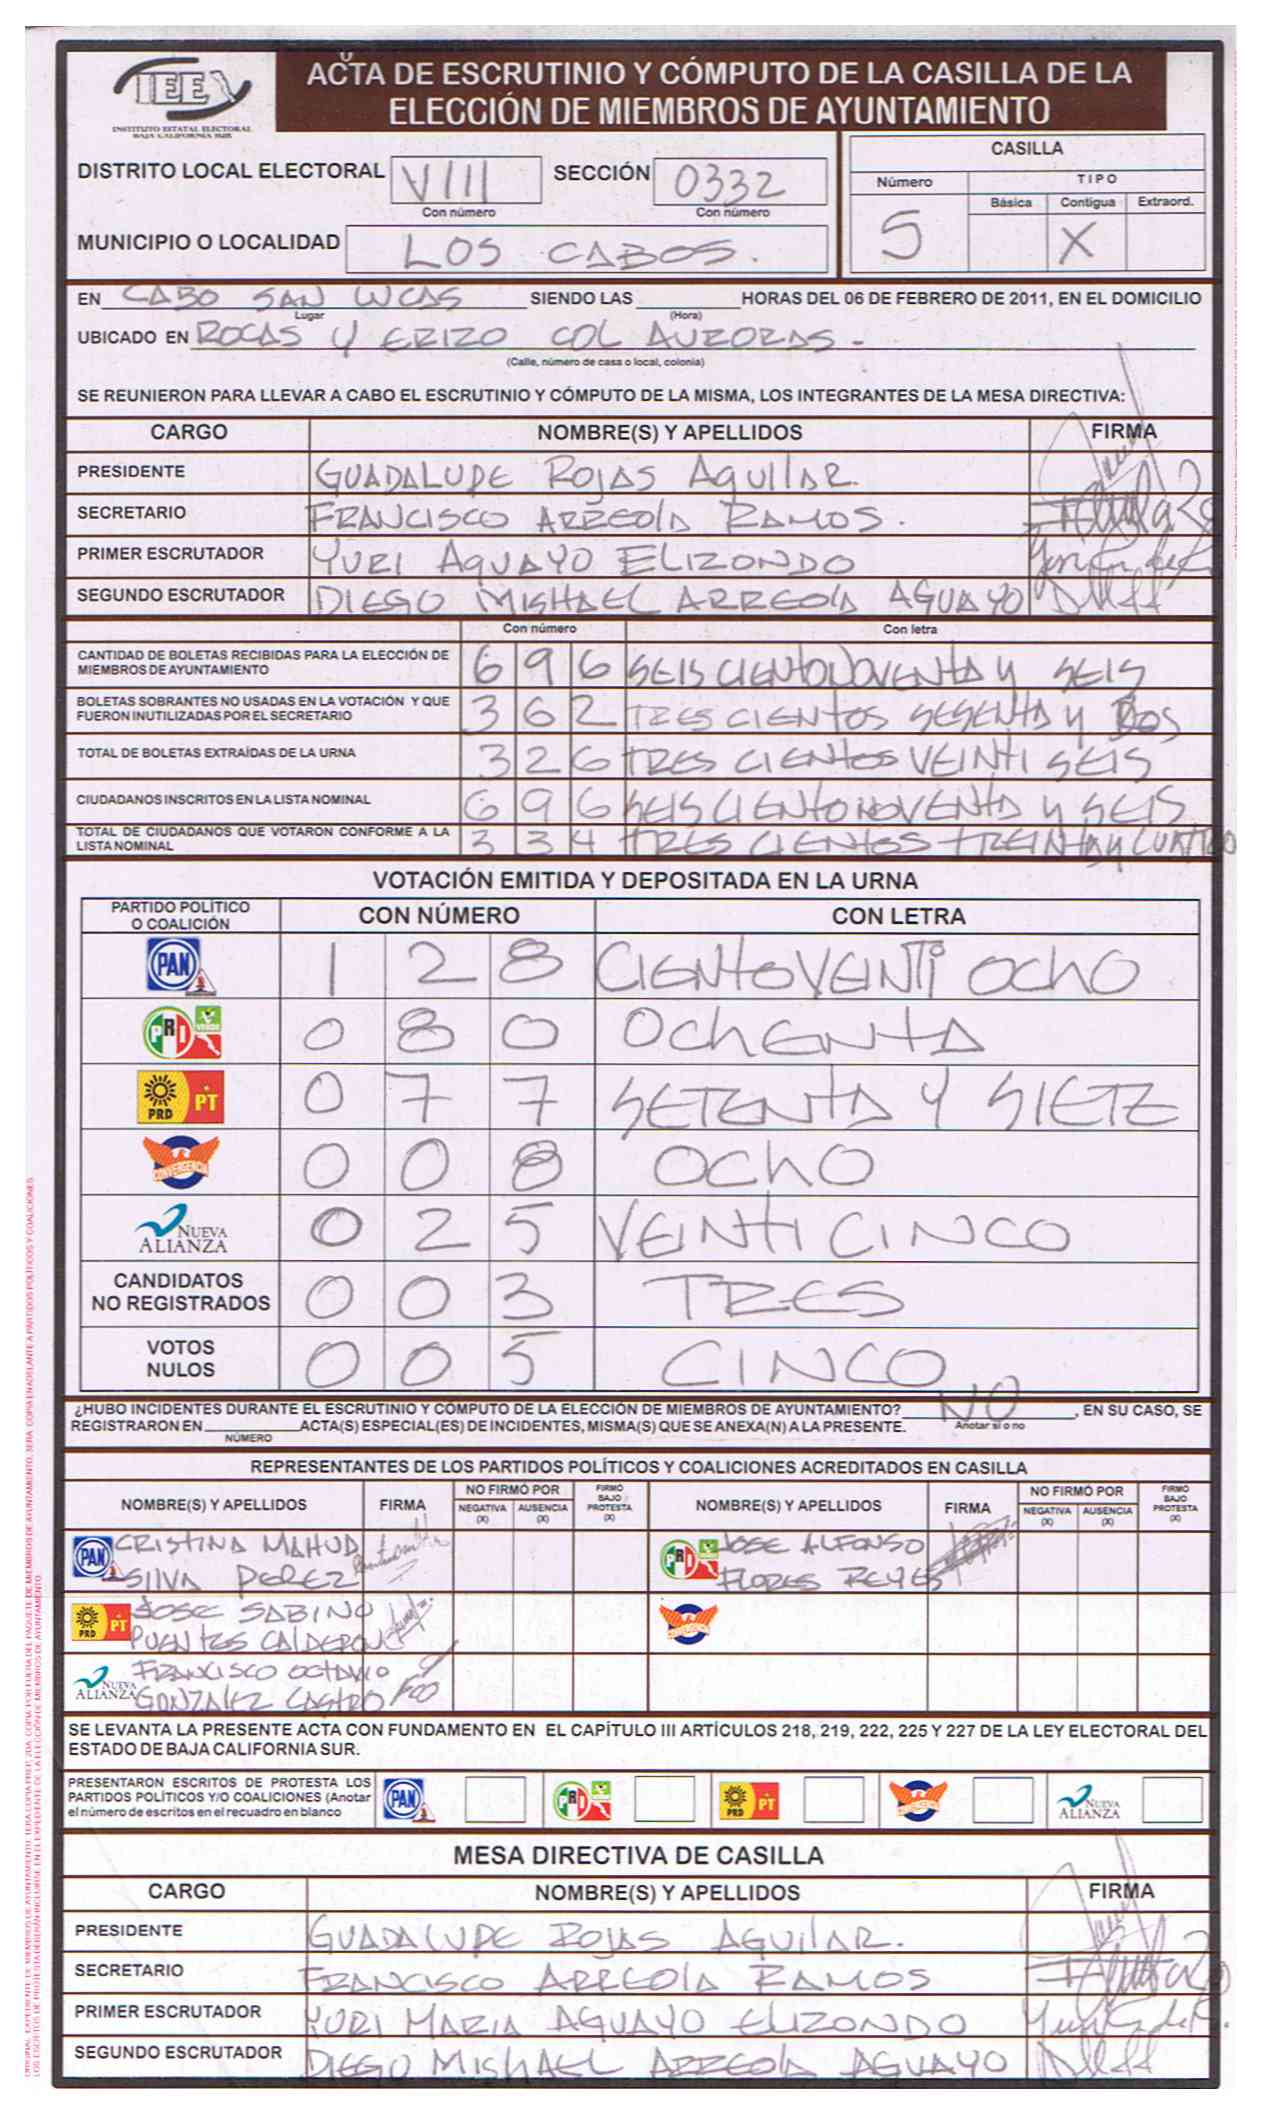 IEE
INSTITUTO ESTATAL ELECTORAL
BAJA CALIFORNIA SUR
ACTA DE ESCRUTINIO Y CÓMPUTO DE LA CASILLA DE LA
ELECCIÓN DE MIEMBROS DE AYUNTAMIENTO
DISTRITO LOCAL ELECTORAL VIII SECCIÓN 0332
Con número Con número
MUNICIPIO O LOCALIDAD LOS CABOS.
CASILLA
Número TIPO
Básica Contigua Extraord.
5 X
EN CABO SAN LUCAS SIENDO LAS HORAS DEL 06 DE FEBRERO DE 2011, EN EL DOMICILIO
Lugar (Hora)
UBICADO EN ROCAS Y ERIZO COL AURORAS -
(Calle, número de casa o local, colonia)
SE REUNIERON PARA LLEVAR A CABO EL ESCRUTINIO Y CÓMPUTO DE LA MISMA, LOS INTEGRANTES DE LA MESA DIRECTIVA:
CARGO NOMBRE(S) Y APELLIDOS FIRMA
PRESIDENTE GUADALUPE ROJAS AGUILAR.
SECRETARIO FRANCISCO ARREOLA RAMOS.
PRIMER ESCRUTADOR YURI AGUAYO ELIZONDO
SEGUNDO ESCRUTADOR DIEGO MISHAEL ARREOLA AGUAYO
Con número Con letra
CANTIDAD DE BOLETAS RECIBIDAS PARA LA ELECCIÓN DE
MIEMBROS DE AYUNTAMIENTO 6 9 6 SEISCIENTONOVENTA Y SEIS
BOLETAS SOBRANTES NO USADAS EN LA VOTACIÓN Y QUE
FUERON INUTILIZADAS POR EL SECRETARIO 3 6 2 TRES CIENTOS SESENTA Y DOS
TOTAL DE BOLETAS EXTRAÍDAS DE LA URNA 3 2 6 TRES CIENTOS VEINTI SEIS
CIUDADANOS INSCRITOS EN LA LISTA NOMINAL 6 9 6 SEISCIENTONOVENTA Y SEIS
TOTAL DE CIUDADANOS QUE VOTARON CONFORME A LA
LISTA NOMINAL 3 3 4 TRES CIENTOS TREINTA Y CUATRO
VOTACIÓN EMITIDA Y DEPOSITADA EN LA URNA
PARTIDO POLÍTICO
O COALICIÓN CON NÚMERO CON LETRA
PAN 1 2 8 CIENTOVEINTI OCHO
PRI VERDE 0 8 0 OCHENTA
PRD PT 0 7 7 SETENTA Y SIETE
CONVERGENCIA 0 0 8 OCHO
NUEVA ALIANZA 0 2 5 VEINTI CINCO
CANDIDATOS
NO REGISTRADOS 0 0 3 TRES
VOTOS
NULOS 0 0 5 CINCO
¿HUBO INCIDENTES DURANTE EL ESCRUTINIO Y CÓMPUTO DE LA ELECCIÓN DE MIEMBROS DE AYUNTAMIENTO? NO , EN SU CASO, SE
Anotar sí o no
REGISTRARON EN ACTA(S) ESPECIAL(ES) DE INCIDENTES, MISMA(S) QUE SE ANEXA(N) A LA PRESENTE.
NÚMERO
REPRESENTANTES DE LOS PARTIDOS POLÍTICOS Y COALICIONES ACREDITADOS EN CASILLA
NOMBRE(S) Y APELLIDOS FIRMA NO FIRMÓ POR NEGATIVA (X) AUSENCIA (X) FIRMÓ BAJO PROTESTA (X) NOMBRE(S) Y APELLIDOS FIRMA NO FIRMÓ POR NEGATIVA (X) AUSENCIA (X) FIRMÓ BAJO PROTESTA (X)
PAN CRISTINA MAHUD
SILVA PEREZ
PRI JOSE ALFONSO
FLORES REYES
PRD PT JOSE SABINO
PUENTES CALDERON
CONVERGENCIA
NUEVA ALIANZA FRANCISCO OCTAVIO
GONZALEZ CASTRO
SE LEVANTA LA PRESENTE ACTA CON FUNDAMENTO EN EL CAPÍTULO III ARTÍCULOS 218, 219, 222, 225 Y 227 DE LA LEY ELECTORAL DEL
ESTADO DE BAJA CALIFORNIA SUR.
PRESENTARON ESCRITOS DE PROTESTA LOS
PARTIDOS POLÍTICOS Y/O COALICIONES (Anotar
el número de escritos en el recuadro en blanco
PAN PRI PRD PT CONVERGENCIA NUEVA ALIANZA
MESA DIRECTIVA DE CASILLA
CARGO NOMBRE(S) Y APELLIDOS FIRMA
PRESIDENTE GUADALUPE ROJAS AGUILAR.
SECRETARIO FRANCISCO ARREOLA RAMOS
PRIMER ESCRUTADOR YURI MARIA AGUAYO ELIZONDO
SEGUNDO ESCRUTADOR DIEGO MISHAEL ARREOLA AGUAYO